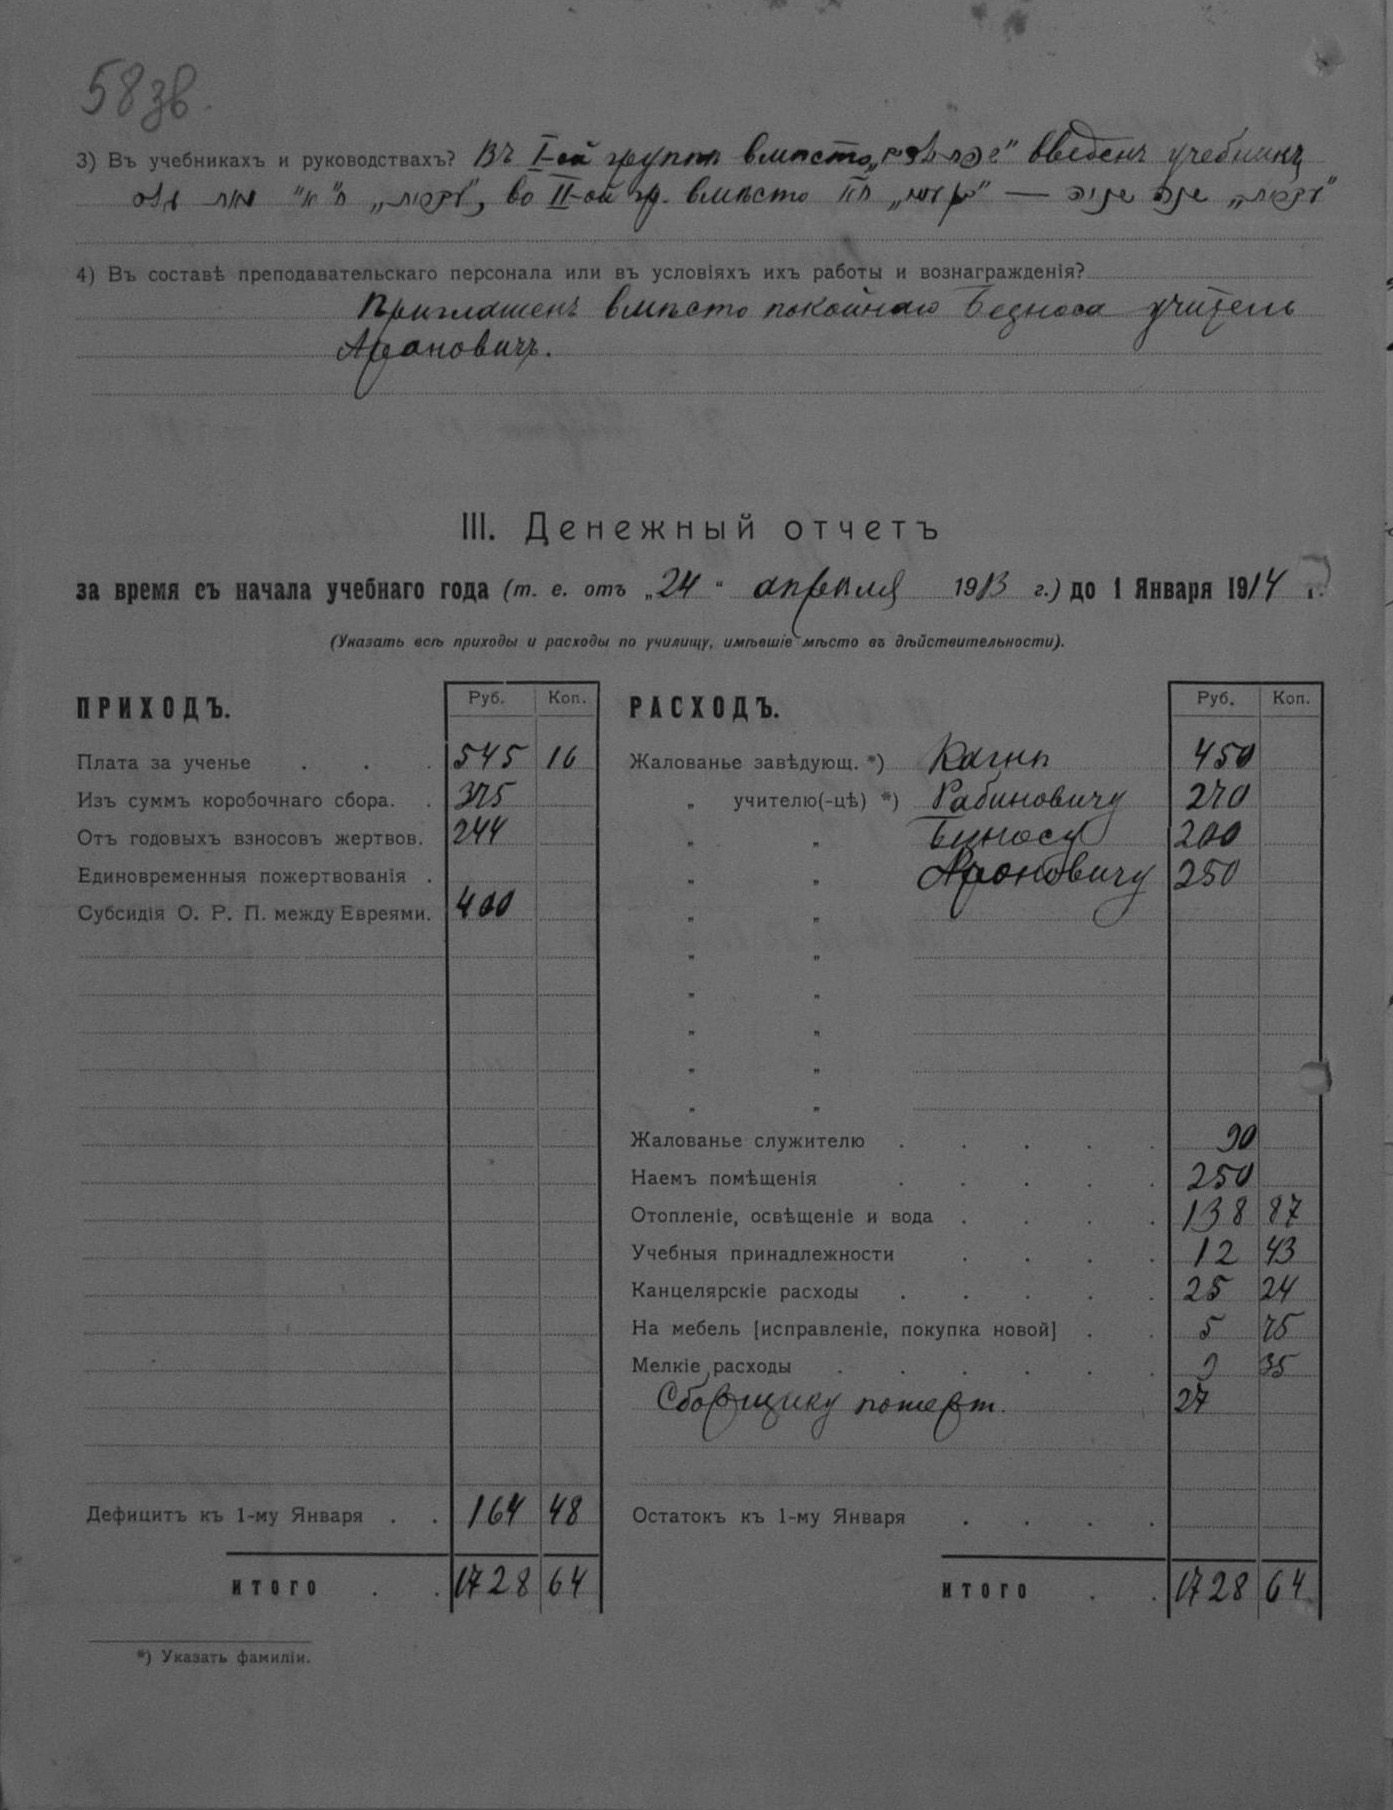 58 зв.
3) Въ учебникахъ и руководствахъ? Въ I-ой группѣ вмѣсто введенъ учебникъ
во II-ой гр. вмѣсто —
4) Въ составѣ преподавательскаго персонала или въ условіяхъ ихъ работы и вознагражденія?
Приглашенъ вмѣсто покойнаго учитель
Ароновичъ.
III. Денежный отчетъ
за время съ начала учебнаго года (т. е. отъ „24" апрѣля 1913 г.) до 1 Января 1914 г.
(Указать всѣ приходы и расходы по училищу, имѣвшіе мѣсто въ дѣйствительности).
ПРИХОДЪ. Руб. Коп.
Плата за ученье . . . 545 16
Изъ суммъ коробочнаго сбора. . 375
Отъ годовыхъ взносовъ жертвов. 244
Единовременныя пожертвованія .
Субсидія О. Р. П. между Евреями. 400
Дефицитъ къ 1-му Января . . 164 48
ИТОГО . . 1728 64
РАСХОДЪ. Руб. Коп.
Жалованье завѣдующ. *) Кагнъ 450
„ учителю(-цѣ) *) Рабиновичу 270
„ „ 200
„ „ Ароновичу 250
„ „
„ „
„ „
„ „
„ „
„ „
Жалованье служителю . . . . . 90
Наемъ помѣщенія . . . . . 250
Отопленіе, освѣщеніе и вода . . . . 138 87
Учебныя принадлежности . . . . 12 43
Канцелярскіе расходы . . . . . 25 24
На мебель [исправленіе, покупка новой] . . 5 75
Мелкіе расходы . . . . . . 9 35
Сборщику пожерт. 27
Остатокъ къ 1-му Января . . . .
ИТОГО . . 1728 64
*) Указать фамиліи.